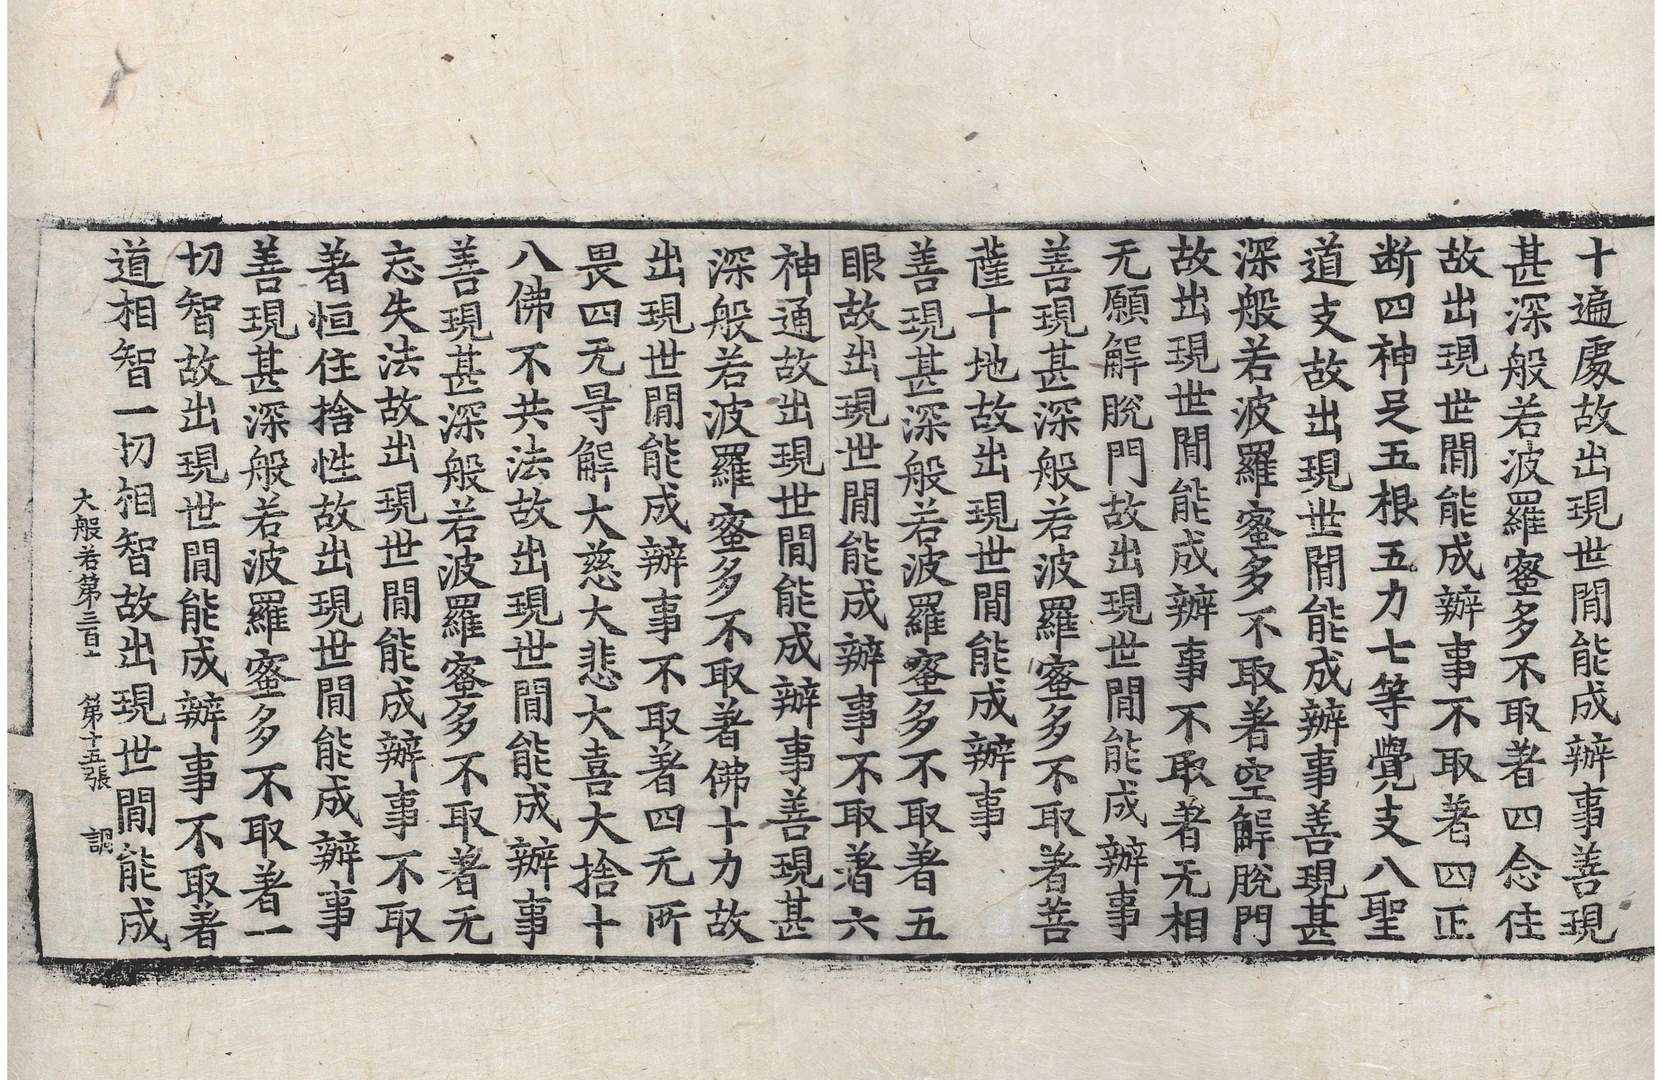 十遍處故出現世閒能成辦事善現
甚深般若波羅蜜多不取著四念住
故出現世閒能成辦事不取著四正
断四神足五根五力七等覺支八聖
道支故出現世閒能成辦事善現甚
深般若波羅蜜多不取著空解脫門
故出現世閒能成辦事不取著无相
无願解脫門故出現世閒能成辦事
善現甚深般若波羅蜜多不取著菩
薩十地故出現世閒能成辦事
善現甚深般若波羅蜜多不取著五
眼故出現世閒能成辦事不取著六
神通故出現世閒能成辦事善現甚
深般若波羅蜜多不取著佛十力故
出現世閒能成辦事不取著四无所
畏四无㝵解大慈大悲大喜大捨十
八佛不共法故出現世閒能成辦事
善現甚深般若波羅蜜多不取著无
忘失法故出現世閒能成辦事不取
著恒住捨性故出現世閒能成辦事
善現甚深般若波羅蜜多不取著一
切智故出現世閒能成辦事不取著
道相智一切相智故出現世閒能成
大般若第三百一 第十五張 調